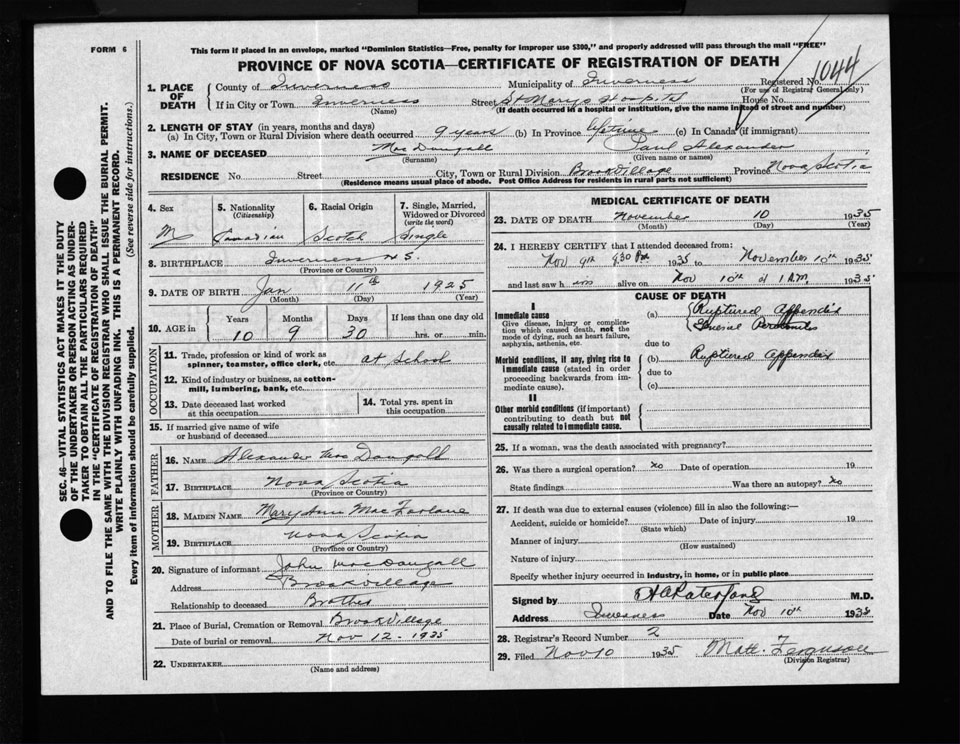 FORM 6
This form if placed in an envelope, marked "Dominion Statistics—Free, penalty for improper use $300," and properly addressed will pass through the mail "FREE"
PROVINCE OF NOVA SCOTIA—CERTIFICATE OF REGISTRATION OF DEATH
SEC. 46—VITAL STATISTICS ACT MAKES IT THE DUTY
OF THE UNDERTAKER OR PERSON ACTING AS UNDER-
TAKER TO OBTAIN ALL THE PARTICULARS REQUIRED
IN THE "CERTIFICATE OF REGISTRATION OF DEATH"
AND TO FILE THE SAME WITH THE DIVISION REGISTRAR WHO SHALL ISSUE THE BURIAL PERMIT.
WRITE PLAINLY WITH UNFADING INK. THIS IS A PERMANENT RECORD.
Every item of information should be carefully supplied. (See reverse side for instructions.)
1. PLACE OF DEATH
County of Inverness Municipality of Inverness Registered No. 1044
(For use of Registrar General only)
If in City or Town Inverness Street St Marys Hospital House No.
(Name) (If death occurred in a hospital or institution, give the name instead of street and number)
2. LENGTH OF STAY (in years, months and days)
(a) In City, Town or Rural Division where death occurred 9 years (b) In Province lifetime (c) In Canada (if immigrant)
3. NAME OF DECEASED MacDougall Paul Alexander
(Surname) (Given name or names)
RESIDENCE No. Street City, Town or Rural Division Brook Village Province Nova Scotia
(Residence means usual place of abode. Post Office Address for residents in rural parts not sufficient)
4. Sex
M
5. Nationality
(Citizenship)
Canadian
6. Racial Origin
Scotch
7. Single, Married,
Widowed or Divorced
(write the word)
Single
8. BIRTHPLACE Inverness N.S.
(Province or Country)
9. DATE OF BIRTH Jan 11th 1925
(Month) (Day) (Year)
10. AGE in
Years Months Days If less than one day old
10 9 30 hrs. or min.
OCCUPATION
11. Trade, profession or kind of work as
spinner, teamster, office clerk, etc. at School
12. Kind of industry or business, as cotton-
mill, lumbering, bank, etc.
13. Date deceased last worked
at this occupation
14. Total yrs. spent in
this occupation
15. If married give name of wife
or husband of deceased
FATHER
16. NAME Alexander MacDougall
17. BIRTHPLACE Nova Scotia
(Province or Country)
MOTHER
18. MAIDEN NAME Mary Ann MacFarlane
19. BIRTHPLACE Nova Scotia
(Province or Country)
20. Signature of informant John MacDougall
Address Brookvillage
Relationship to deceased Brother
21. Place of Burial, Cremation or Removal Brook Village
Date of burial or removal Nov 12 - 1935
22. UNDERTAKER
(Name and address)
MEDICAL CERTIFICATE OF DEATH
23. DATE OF DEATH November 10 1935
(Month) (Day) (Year)
24. I HEREBY CERTIFY that I attended deceased from:
Nov 9th 9.30 1935 to November 10th 1935
and last saw him alive on Nov 10th at 1 A.M. 1935
CAUSE OF DEATH
I
Immediate cause
Give disease, injury or complica-
tion which caused death, not the
mode of dying, such as heart failure,
asphyxia, asthenia, etc.
(a) Ruptured Appendix
General Peritonitis
due to
Morbid conditions, if any, giving rise to
immediate cause (stated in order
proceeding backwards from im-
mediate cause).
(b) Ruptured Appendix
due to
(c)
II
Other morbid conditions (if important)
contributing to death but not
causally related to immediate cause.
25. If a woman, was the death associated with pregnancy?
26. Was there a surgical operation? No Date of operation 19
State findings Was there an autopsy? No
27. If death was due to external causes (violence) fill in also the following:—
Accident, suicide or homicide? Date of injury 19
(State which)
Manner of injury
(How sustained)
Nature of injury
Specify whether injury occurred in industry, in home, or in public place
Signed by M.D.
Address Inverness Date Nov 10th 1935
28. Registrar's Record Number 2
29. Filed Nov 10 1935 Matt. Ferguson
(Division Registrar)